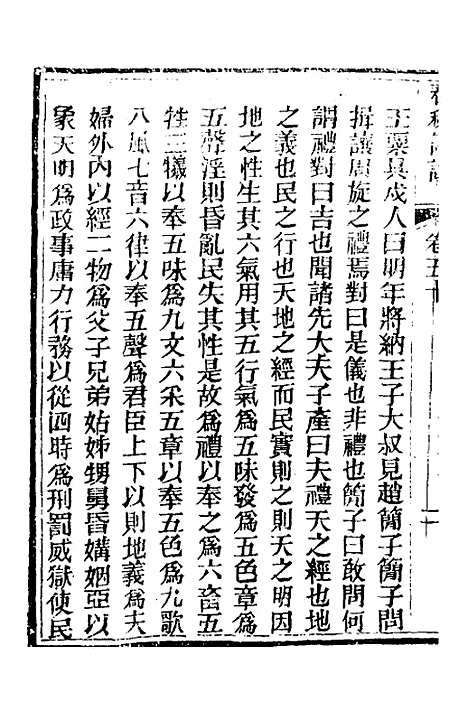 王粟具戍人曰明年將納王子大叔見趙簡子簡子問
揖讓周旋之禮焉對曰是儀也非禮也簡子曰敢問何
謂禮對曰吉也聞諸先大夫子產曰夫禮天之經也地
之義也民之行也天地之經而民實則之則天之明因
地之性生其六氣用其五行氣為五味發為五色章為
五聲淫則昏亂民失其性是故為禮以奉之為六畜五
牲三犧以奉五味為九文六采五章以奉五色為九歌
八風七音六律以奉五聲為君臣上下以則地義為夫
婦外內以經二物為父子兄弟姑姊甥舅昏媾姻亞以
象天明為政事庸力行務以從四時為刑罰威獄使民